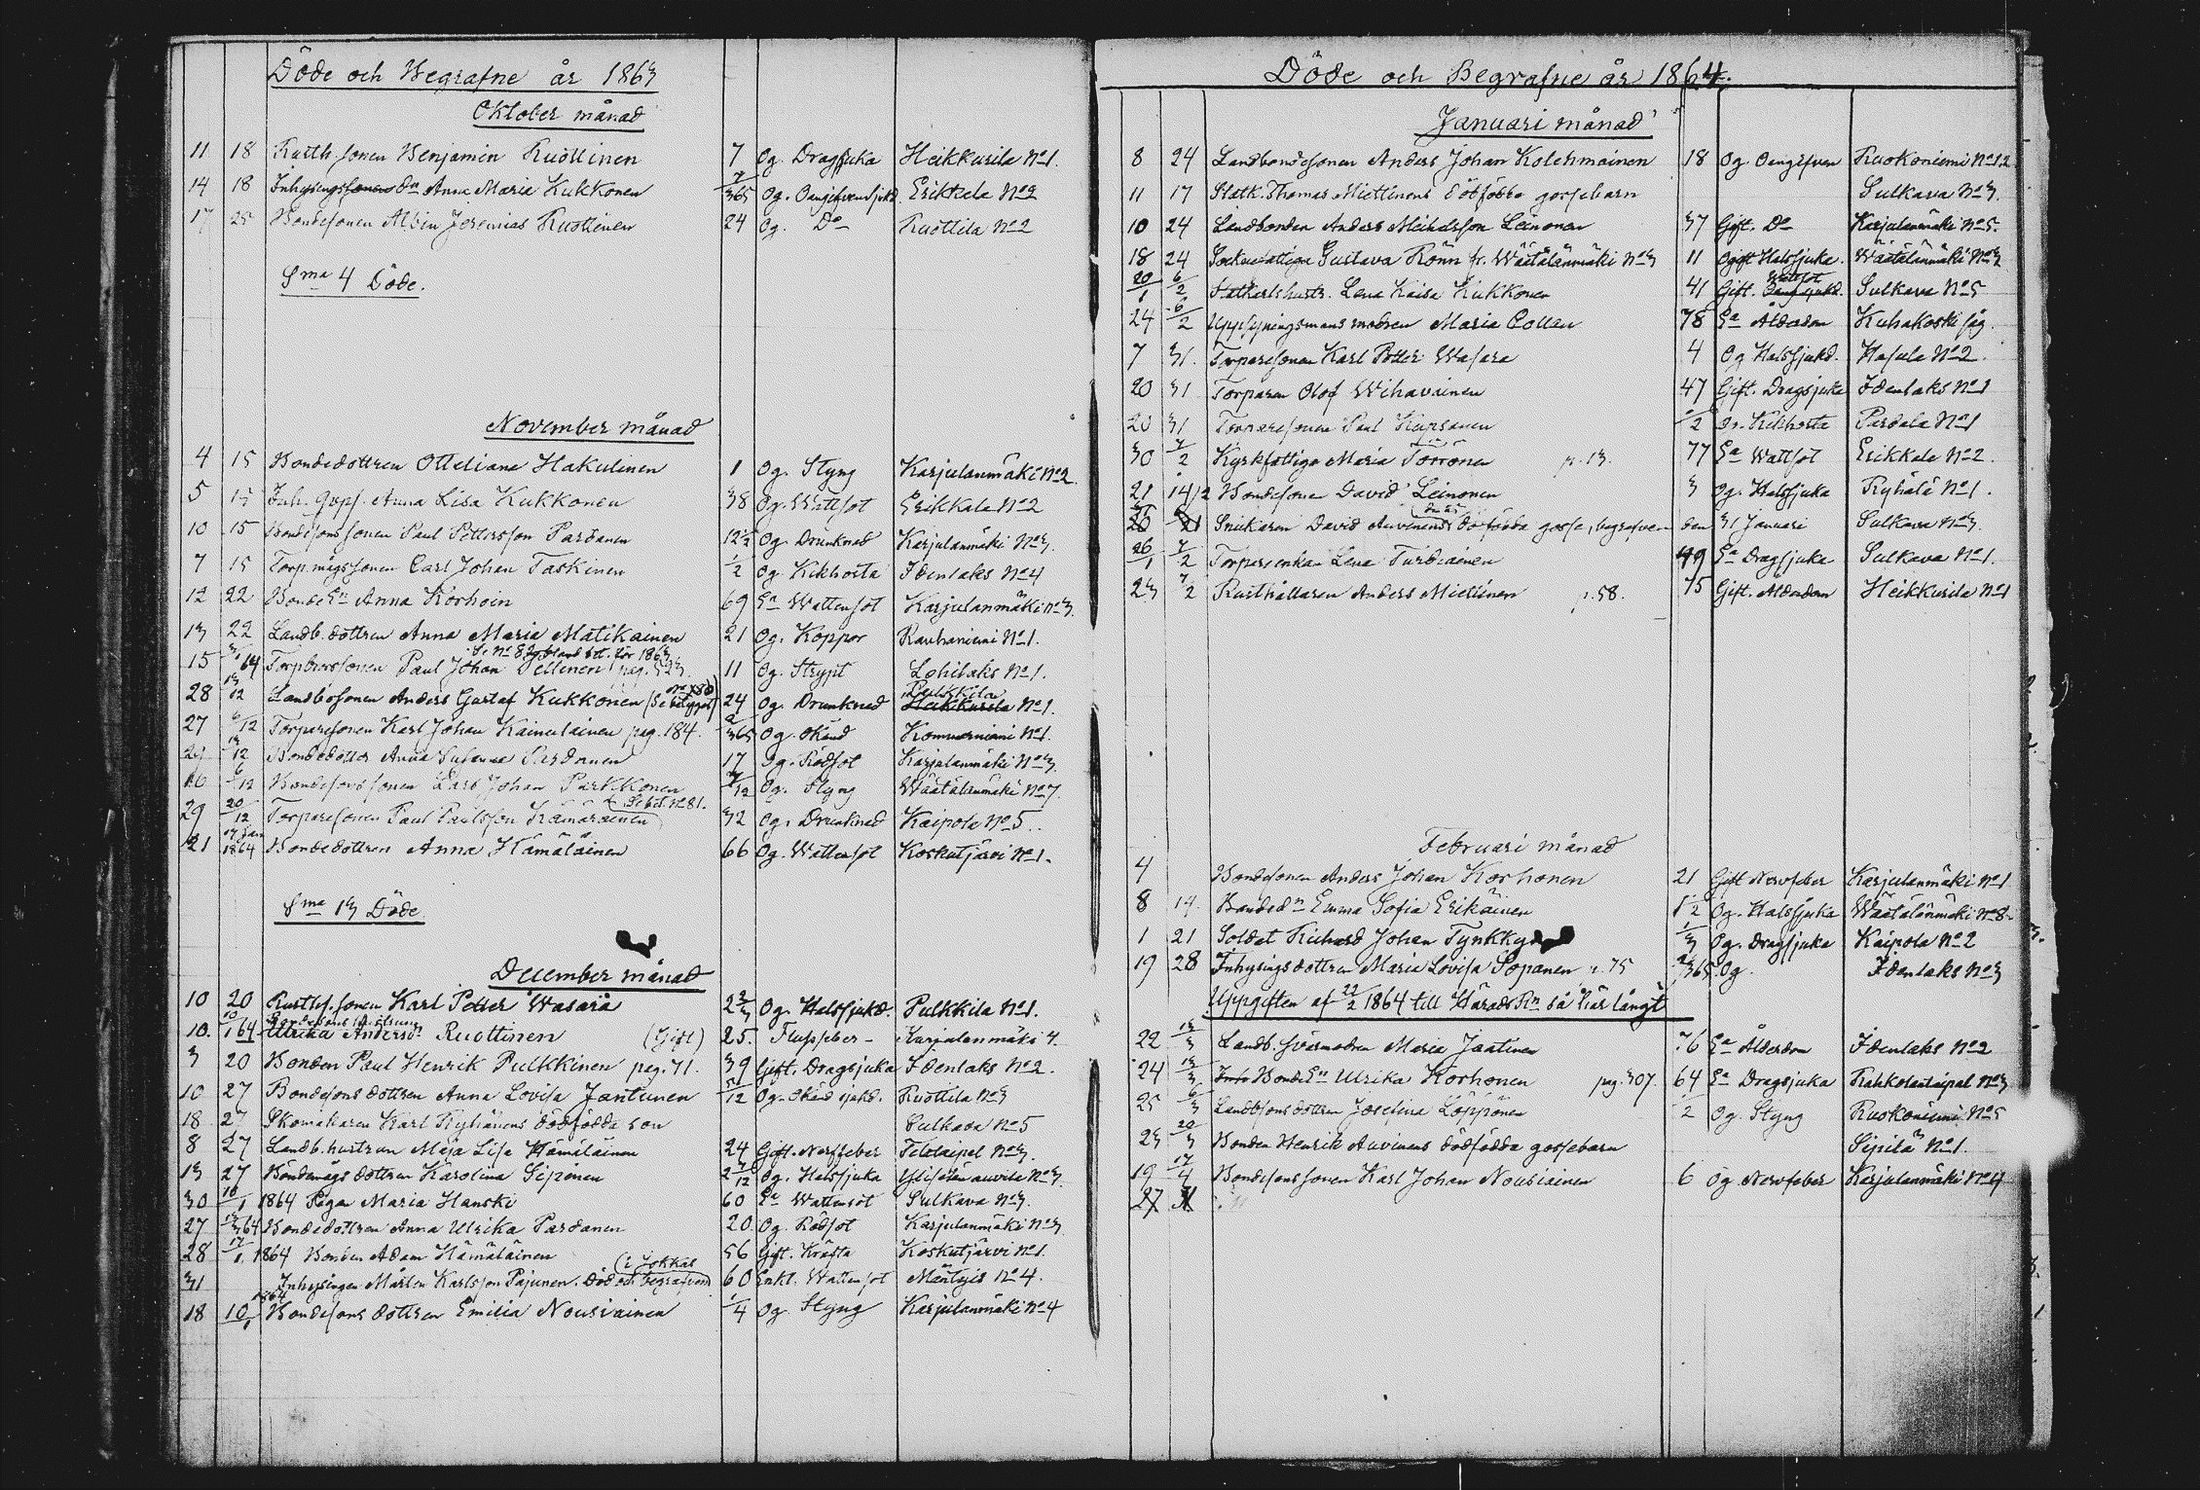 Döde och Begrafne år 1863
Oktober månad
11 18 Rusth. sonen Benjamin Ruottinen 7 Og Dragsjuka Heikkurila No 1.
14 18 Inhysings dn Anna Maria Kukkonen 7/365 Og. Erikkala No 2
17 25 Bondesonen Albin Jeremias Ruottinen 24 Og. Do Ruottila No 2
Sma 4 Döde.
November månad
4 15 Bondedottren Otteliana Hakulinen 1 Og. Styng Karjulanmäki No 2
5 15 Inh. qvps. Anna Lisa Kukkonen 38 Og. Wattsot Erikkala No 2
10 15 Bondesonssonen Paul Pettersson Pardanen 12 1/2 Og. Drunknad Karjulanmäki No 3.
7 15 Torp.mågssonen Carl Johan Taskinen 1/2 Og Kikhosta Idenlaks No 4
12 22 Bonde En Anna Korhoin 69 Ea Wattensot Karjulanmäki No 3.
13 22 Landb. dottren Anna Maria Matikainen 21 Og. Koppor Rauhaniemi No 1.
15 3/1 64 Torpbrorssonen Paul Johan Pellinen pag. 523. 11 Og. Strypt Lohilaks No 1.
28 13/12 Landbosonen Anders Gustaf Kukkonen (Se betyget No 80) 24 Og. Drunknad Pulkkila No 1.
27 6/12 Torparesonen Karl Johan Kainulainen pag. 184. 2/365 Og. okänd No 1.
29 13/12 Bondedotter Anna Susanna Pardanen 17 Og. Rödsot Karjulanmäki No 3.
6/12 Bondesonssonen Lars Johan Parkkonen 7/12 Og. Styng Wäätälänmäki No 7.
29 20/12 Torparesonen Paul Paulsson Kämäräinen (Se bet. No 81.) 32 Og. Drunknad Kaipola No 5.
21 17 Jan 1864 Bondedottren Anna Hämäläinen 66 Og. Wattensot Koskutjärvi No 1.
Sma 13 Döde.
December månad
10 20 Rusth. sonen Karl Petter Wasara 2 2/3 Og. Halssjukd. Pulkkila No 1.
10. 10/1 64 Ulrika Andersdr Ruottinen (Gift) 25. Flussfeber Karjulanmäki 4.
3 20 Bonden Paul Henrik Pulkkinen pag. 71. 39 Gift. Dragsjuka Idenlaks No 2.
10 27 Bondesons dottren Anna Lovisa Jantunen 5/12 Og. Okänd sjukd. Ruottila No 3
18 27 Skomakaren Karl Ryhänens dödfödda son Sulkava No 5
8 27 Landb. hustrun Maja Lisa Hämäläinen 24 Gift. Nerffeber Telataipal No 3.
13 27 Bondemågs dottren Karolina Sipinen 2 7/12 Og. Halssjuka No 3.
30 10/1 1864 Pigan Maria Hanski 60 Ea Wattusot Sulkava No 3.
27 64 Bondedottren Anna Ulrika Pardanen 20. Og. Rödsot Karjulanmäki No 3
28 17/1 1864 Bonden Adam Hämäläinen 56 Gift. Kräfta Koskutjärvi No 1.
31 Inhysingen Mårten Karlsson Pajunen. Död och begrafven (i Jokkas) 60 Enkl. Wattensot Mäntyis No 4.
18 10/1 1864 Bondesons dottren Emilia Nousiainen 1/4 Og. Styng Karjulanmäki No 4
Döde och Begrafne år 1864.
Januari månad
8 24 Landbondesonen Anders Johan Kolehmainen 18 Og Ruokoniemi No 12
11 17 Statk. Thomas Miettinens dödfödda gossebarn Sulkava No 3.
10 24 Landbonden Anders Michelsson Leinonen 37 Gift. Do Karjulanmäki No 5.
18 24 Socknefattiga Gustava Rönn fr. Wäätälänmäki No 3 11 Ogift Halssjuka. Wäätälänmäki No 3
20/1 6/2 Statkarlshustr. Lena Kaisa Kukkonen 41 Gift. Wattsot Sulkava No 5
24 6/2 Uppsyningsmans modren Maria Collan 78 Ea Ålderdom Kuhakoski såg.
7 31. Torparesonen Karl Petter Wasara 4 Og Halssjukd. Hasula No 2.
20 31 Torparen Olof Wihavainen 47 Gift. Dragsjuka Idenlaks No 1
20 31 Torparesonen Paul Kurvanen 1/2 Og. Kikhosta Pardala No 1
30 7/2 Kyrkfattiga Maria Törrönen p. 13. 77 Ea Wattsot Erikkala No 2.
21 14/2 Bondesonen David Leinonen 3 Og. Halssjuka Ryhälä No 1.
Snickaren David Auvinens dödfödda gosse, begrafven den 31 Januari Sulkava No 3.
26/1 7/2 Torpareenkan Lena Turdiainen 49 Ea Dragsjuka Sulkava No 1.
23 7/2 Rusthållaren Anders Miettinen p. 58. 75 Gift. Ålderdom Heikkurila No 1
Februari månad
4 Bondesonen Anders Johan Korhonen 21 Gift Nervfeber Karjulanmäki No 1
8 14. Bonded n Emma Sofia Erikäinen 1 1/2 Og. Halssjuka Wäätälänmäki No 8.
1 21 Soldat Richard Johan Tynkky 1/3 Og. Dragsjuka Kaipola No 2
19 28 Inhysings dottren Maria Lovisa Sopanen p. 75 2/365. Og. Idenlaks No 3
Uppgiften af 22/2 1864 till Härads Rn så här långt
22 13/3 Landb. svärmodren Maria Jantinen 76 Ea Ålderdom Idenlaks No 2
24 13/3 Bonde En Ulrika Korhonen pag. 307. 64 Ea Dragsjuka Rahkolantaipal No 3
25 6/3 Landbsons dottren Josefina Löppönen 1/2 Og. Styng Ruokoniemi No 5
23 20/3 Bonden Henrik Auvinens dödfödda gossebarn Sipilä No 1.
19 17/4 Bondesonssonen Karl Johan Nousiainen 6 Og Nervfeber Karjulanmäki No 4
27